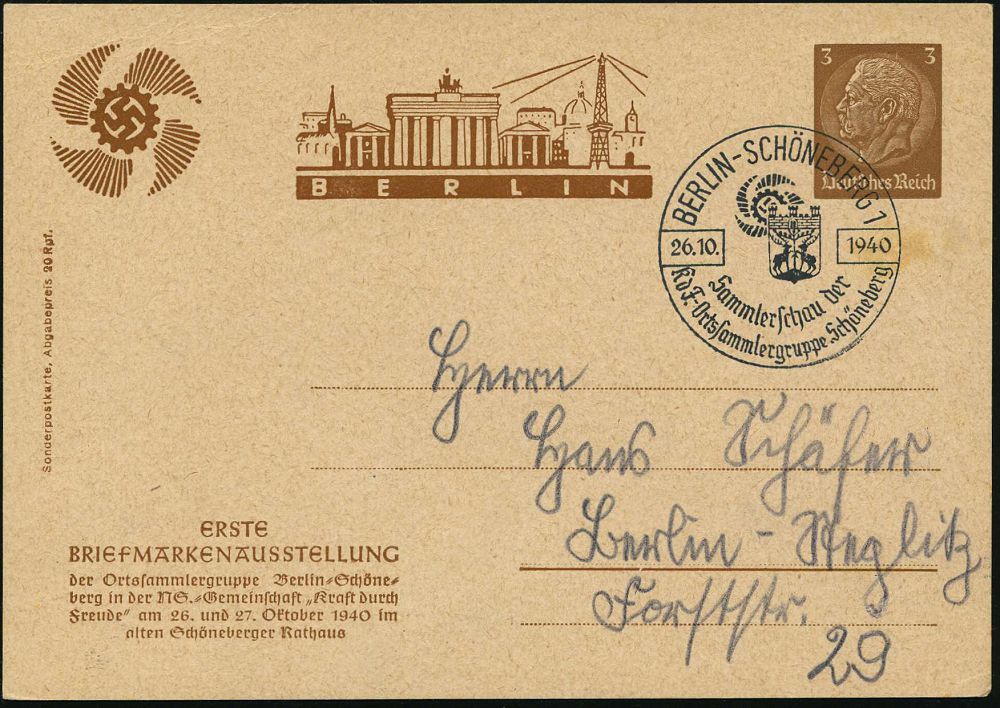 BERLIN
3 3
Deutsches Reich
BERLIN-SCHÖNEBERG 1
26.10. 1940
Sammlerschau der
KdF.-Ortssammlergruppe Schöneberg
Sonderpostkarte, Abgabepreis 20 Rpf.
Herrn
Hans Schäfer
Berlin-Steglitz
Forststr.
29
ERSTE
BRIEFMARKENAUSSTELLUNG
der Ortssammlergruppe Berlin-Schöne-
berg in der NS.-Gemeinschaft „Kraft durch
Freude“ am 26. und 27. Oktober 1940 im
alten Schöneberger Rathaus